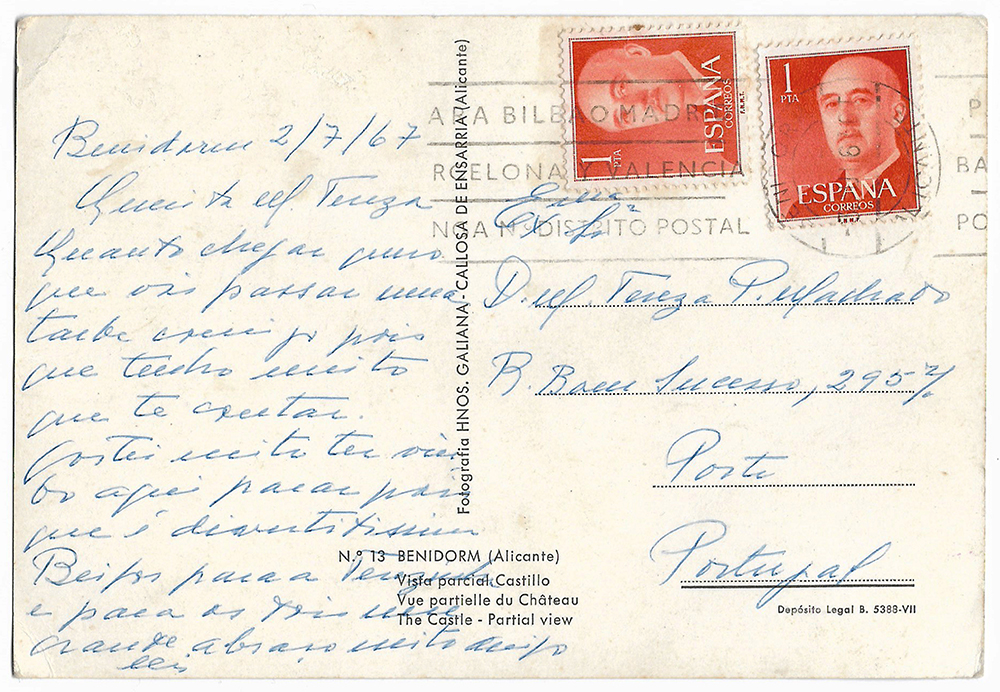 Benidorm 2/7/67
Querida M. Tereza
Quanto chegar quero
que vás passar uma
tarde comigo pois
que tenho muito
que te contar.
Gostei muito ter vin
do aqui parar pois
que é divertitissim
Beijos para a
e para os dois um
grande abraço muito amigo
Fotografía HNOS. GALIANA - CALLOSA DE ENSARRIA (Alicante)
N.º 13 BENIDORM (Alicante)
Vista parcial. Castillo
Vue partielle du Château
The Castle - Partial view
1 PTA
ESPAÑA
CORREOS
F.N.M.T.
1 PTA
ESPAÑA
CORREOS
F.N.M.T.
AVA BILBAO MADR
RCELONA Y VALENCIA
NGA Nº DISTRITO POSTAL
P
BA
PO
Exma
Sra
D. M. Tereza P. Machado
R. Bom Sucesso, 295
Porto
Portugal
Depósito Legal B. 5388-VII